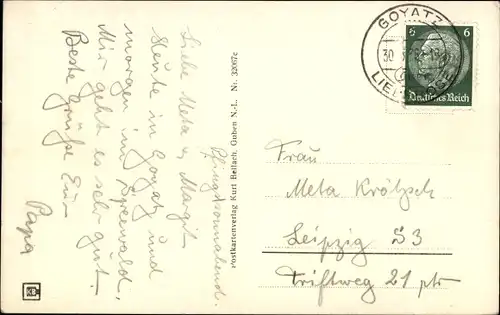 Pfingstsonnabend.
Liebe Meta u. Margit
Heute in Goyatz und
morgen im Spreewald,
Mir geht es sehr gut.
Beste Grüße Eur
Papa
Postkartenverlag Kurt Bellach, Guben N.-L. Nr. 32067c
GOYATZ
30.
6 6
Deutsches Reich
Frau
Meta Krötzsch
Leipzig S3
Triftweg 21 ptr